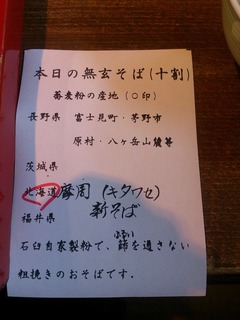 本日の無玄そば(十割)
蕎麦粉の産地(○印)
長野県 富士見町・茅野市
原村・八ヶ岳山麓等
茨城県
北海道 摩周(キタワセ)
新そば
福井県
ふるい
石臼自家製粉で、篩を通さない
粗挽きのおそばです。